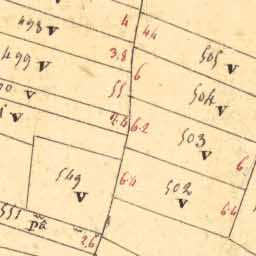 498 v
4
44
499 v
3.8
6
505 v
55
504 v
v
7.4
6.2
503
v
549
v
6.4
502
v
6
6.4
551
pâ
2.6